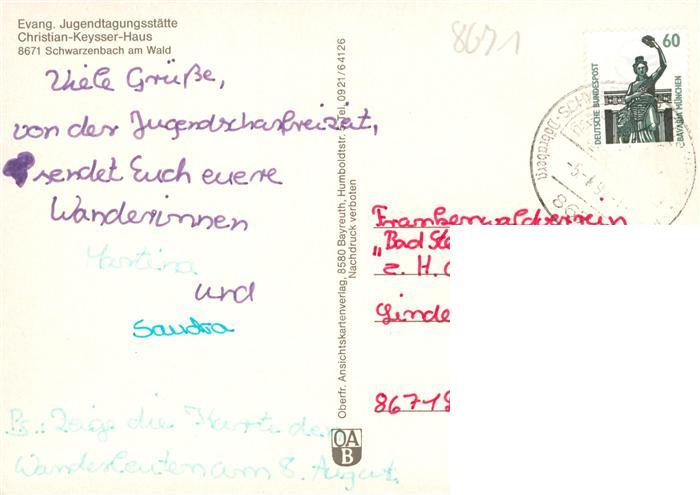 Evang. Jugendtagungsstätte
Christian-Keysser-Haus
8671 Schwarzenbach am Wald
Viele Grüße,
von der Jugendscharfreizeit,
sendet Euch euere
Wanderinnen
Martina
und
Sandra
Ps.: Zeige die Karte den
Wandersleuten am 8. August.
Oberfr. Ansichtskartenverlag, 8580 Bayreuth, Humboldtstr. Tel. 0921/64126
Nachdruck verboten
OA
B
8671
60
DEUTSCHE BUNDESPOST
BAVARIA MÜNCHEN
Frankenwaldverein
"Bad Ste
z. H.
Linde
8671